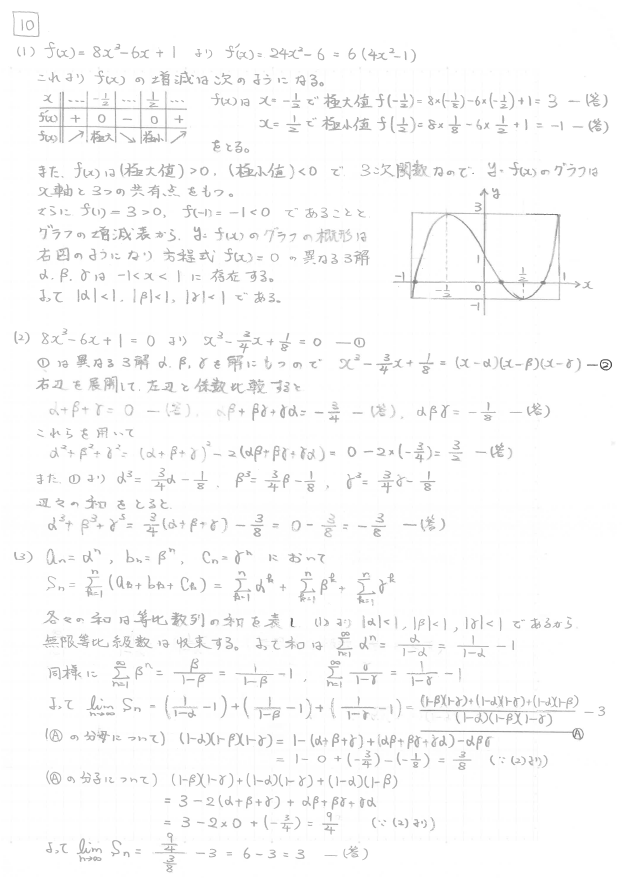 10
(1) f(x) = 8x³-6x+1 より f'(x) = 24x²-6 = 6(4x²-1)
これより f(x) の増減は次のようになる。
x … -1/2 … 1/2 …
f'(x) + 0 - 0 +
f(x) ↗ 極大 ↘ 極小 ↗
f(x)は x=-1/2 で 極大値 f(-1/2) = 8×(-1/8)-6×(-1/2)+1 = 3 —(答)
x=1/2 で 極小値 f(1/2) = 8×1/8-6×1/2+1 = -1 —(答)
をとる。
また、f(x)は(極大値)>0, (極小値)<0 で 3次関数なので、y=f(x)のグラフは
x軸と3つの共有点をもつ。
さらに f(1)=3>0, f(-1)=-1<0 であることと
グラフの増減表から、y=f(x)のグラフの概形は
右図のようになり 方程式 f(x)=0 の異なる3解
α, β, γ は -1<x<1 に存在する。
よって |α|<1, |β|<1, |γ|<1 である。
y
3
1
-1 -1/2 0 1/2 1 x
-1
(2) 8x³-6x+1=0 より x³-3/4x+1/8=0 —①
①は異なる3解 α, β, γ を解にもつので x³-3/4x+1/8 = (x-α)(x-β)(x-γ) —②
右辺を展開して、左辺と係数比較すると
α+β+γ = 0 —(答), αβ+βγ+γα = -3/4 —(答), αβγ = -1/8 —(答)
これらを用いて
α²+β²+γ² = (α+β+γ)²-2(αβ+βγ+γα) = 0-2×(-3/4) = 3/2 —(答)
また ①より α³=3/4α-1/8, β³=3/4β-1/8, γ³=3/4γ-1/8
辺々の和をとると
α³+β³+γ³ = 3/4(α+β+γ)-3/8 = 0-3/8 = -3/8 —(答)
(3) an=αⁿ, bn=βⁿ, cn=γⁿ において
Sn = Σ[k=1→n](ak+bk+ck) = Σ[k=1→n]αᵏ + Σ[k=1→n]βᵏ + Σ[k=1→n]γᵏ
各々の和は等比数列の和を表し (1)より |α|<1, |β|<1, |γ|<1 であるから
無限等比級数は収束する。よって和は Σ[n=1→∞]αⁿ = α/(1-α) = 1/(1-α) -1
同様に Σ[n=1→∞]βⁿ = β/(1-β) = 1/(1-β) -1, Σ[n=1→∞] γ/(1-γ) = 1/(1-γ) -1
よって lim[n→∞] Sn = (1/(1-α) -1)+(1/(1-β) -1)+(1/(1-γ) -1) = ((1-β)(1-γ)+(1-α)(1-γ)+(1-α)(1-β))/((1-α)(1-β)(1-γ)) -3
Ⓐ
(Ⓐの分母について) (1-α)(1-β)(1-γ) = 1-(α+β+γ)+(αβ+βγ+γα)-αβγ
= 1-0+(-3/4)-(-1/8) = 3/8 (∵(2)より)
(Ⓐの分子について) (1-β)(1-γ)+(1-α)(1-γ)+(1-α)(1-β)
= 3-2(α+β+γ)+αβ+βγ+γα
= 3-2×0+(-3/4) = 9/4 (∵(2)より)
よって lim[n→∞] Sn = (9/4)/(3/8) -3 = 6-3 = 3 —(答)